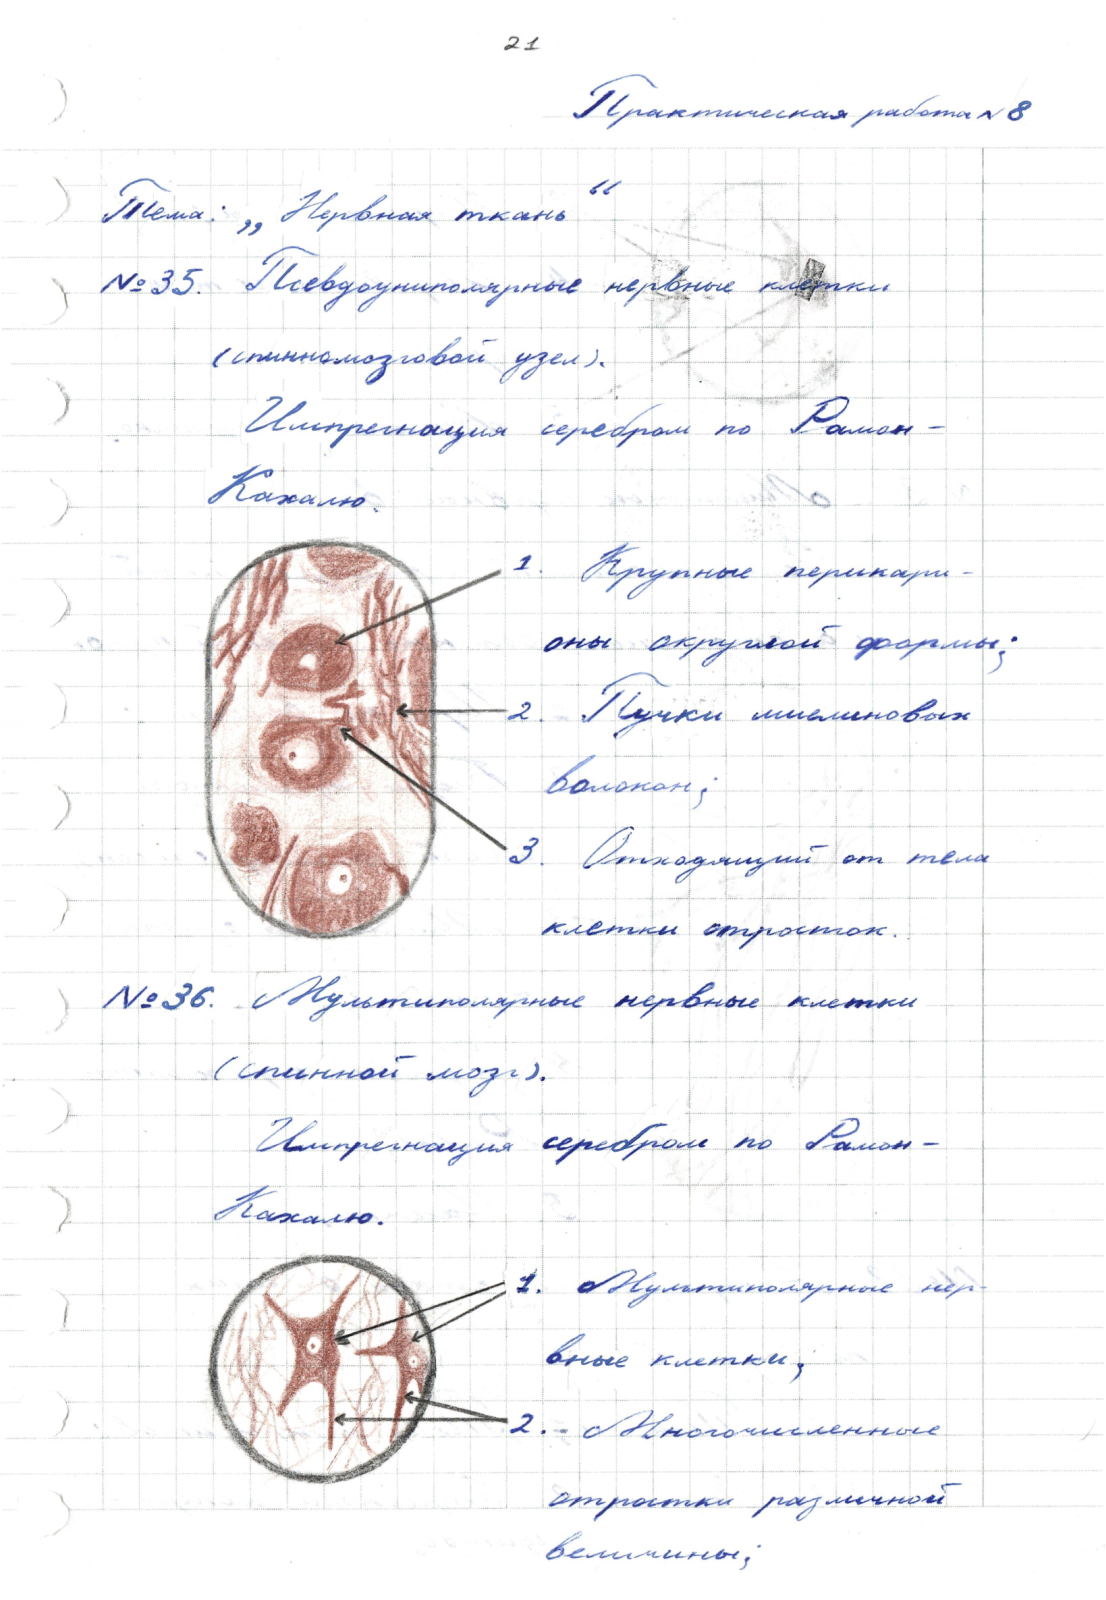 21
Практическая работа № 8
Тема: „Нервная ткань“
№ 35. Псевдоуниполярные нервные клетки
(спинномозговой узел).
Импрегнация серебром по Рамон-
Кахалю.
1. Крупные перикари-
оны округлой формы;
2. Пучки миелиновых
волокон;
3. Отходящий от тела
клетки отросток.
№ 36. Мультиполярные нервные клетки
(спинной мозг).
Импрегнация серебром по Рамон-
Кахалю.
1. Мультиполярные нер-
вные клетки;
2. - Многочисленные
отростки различной
величины;